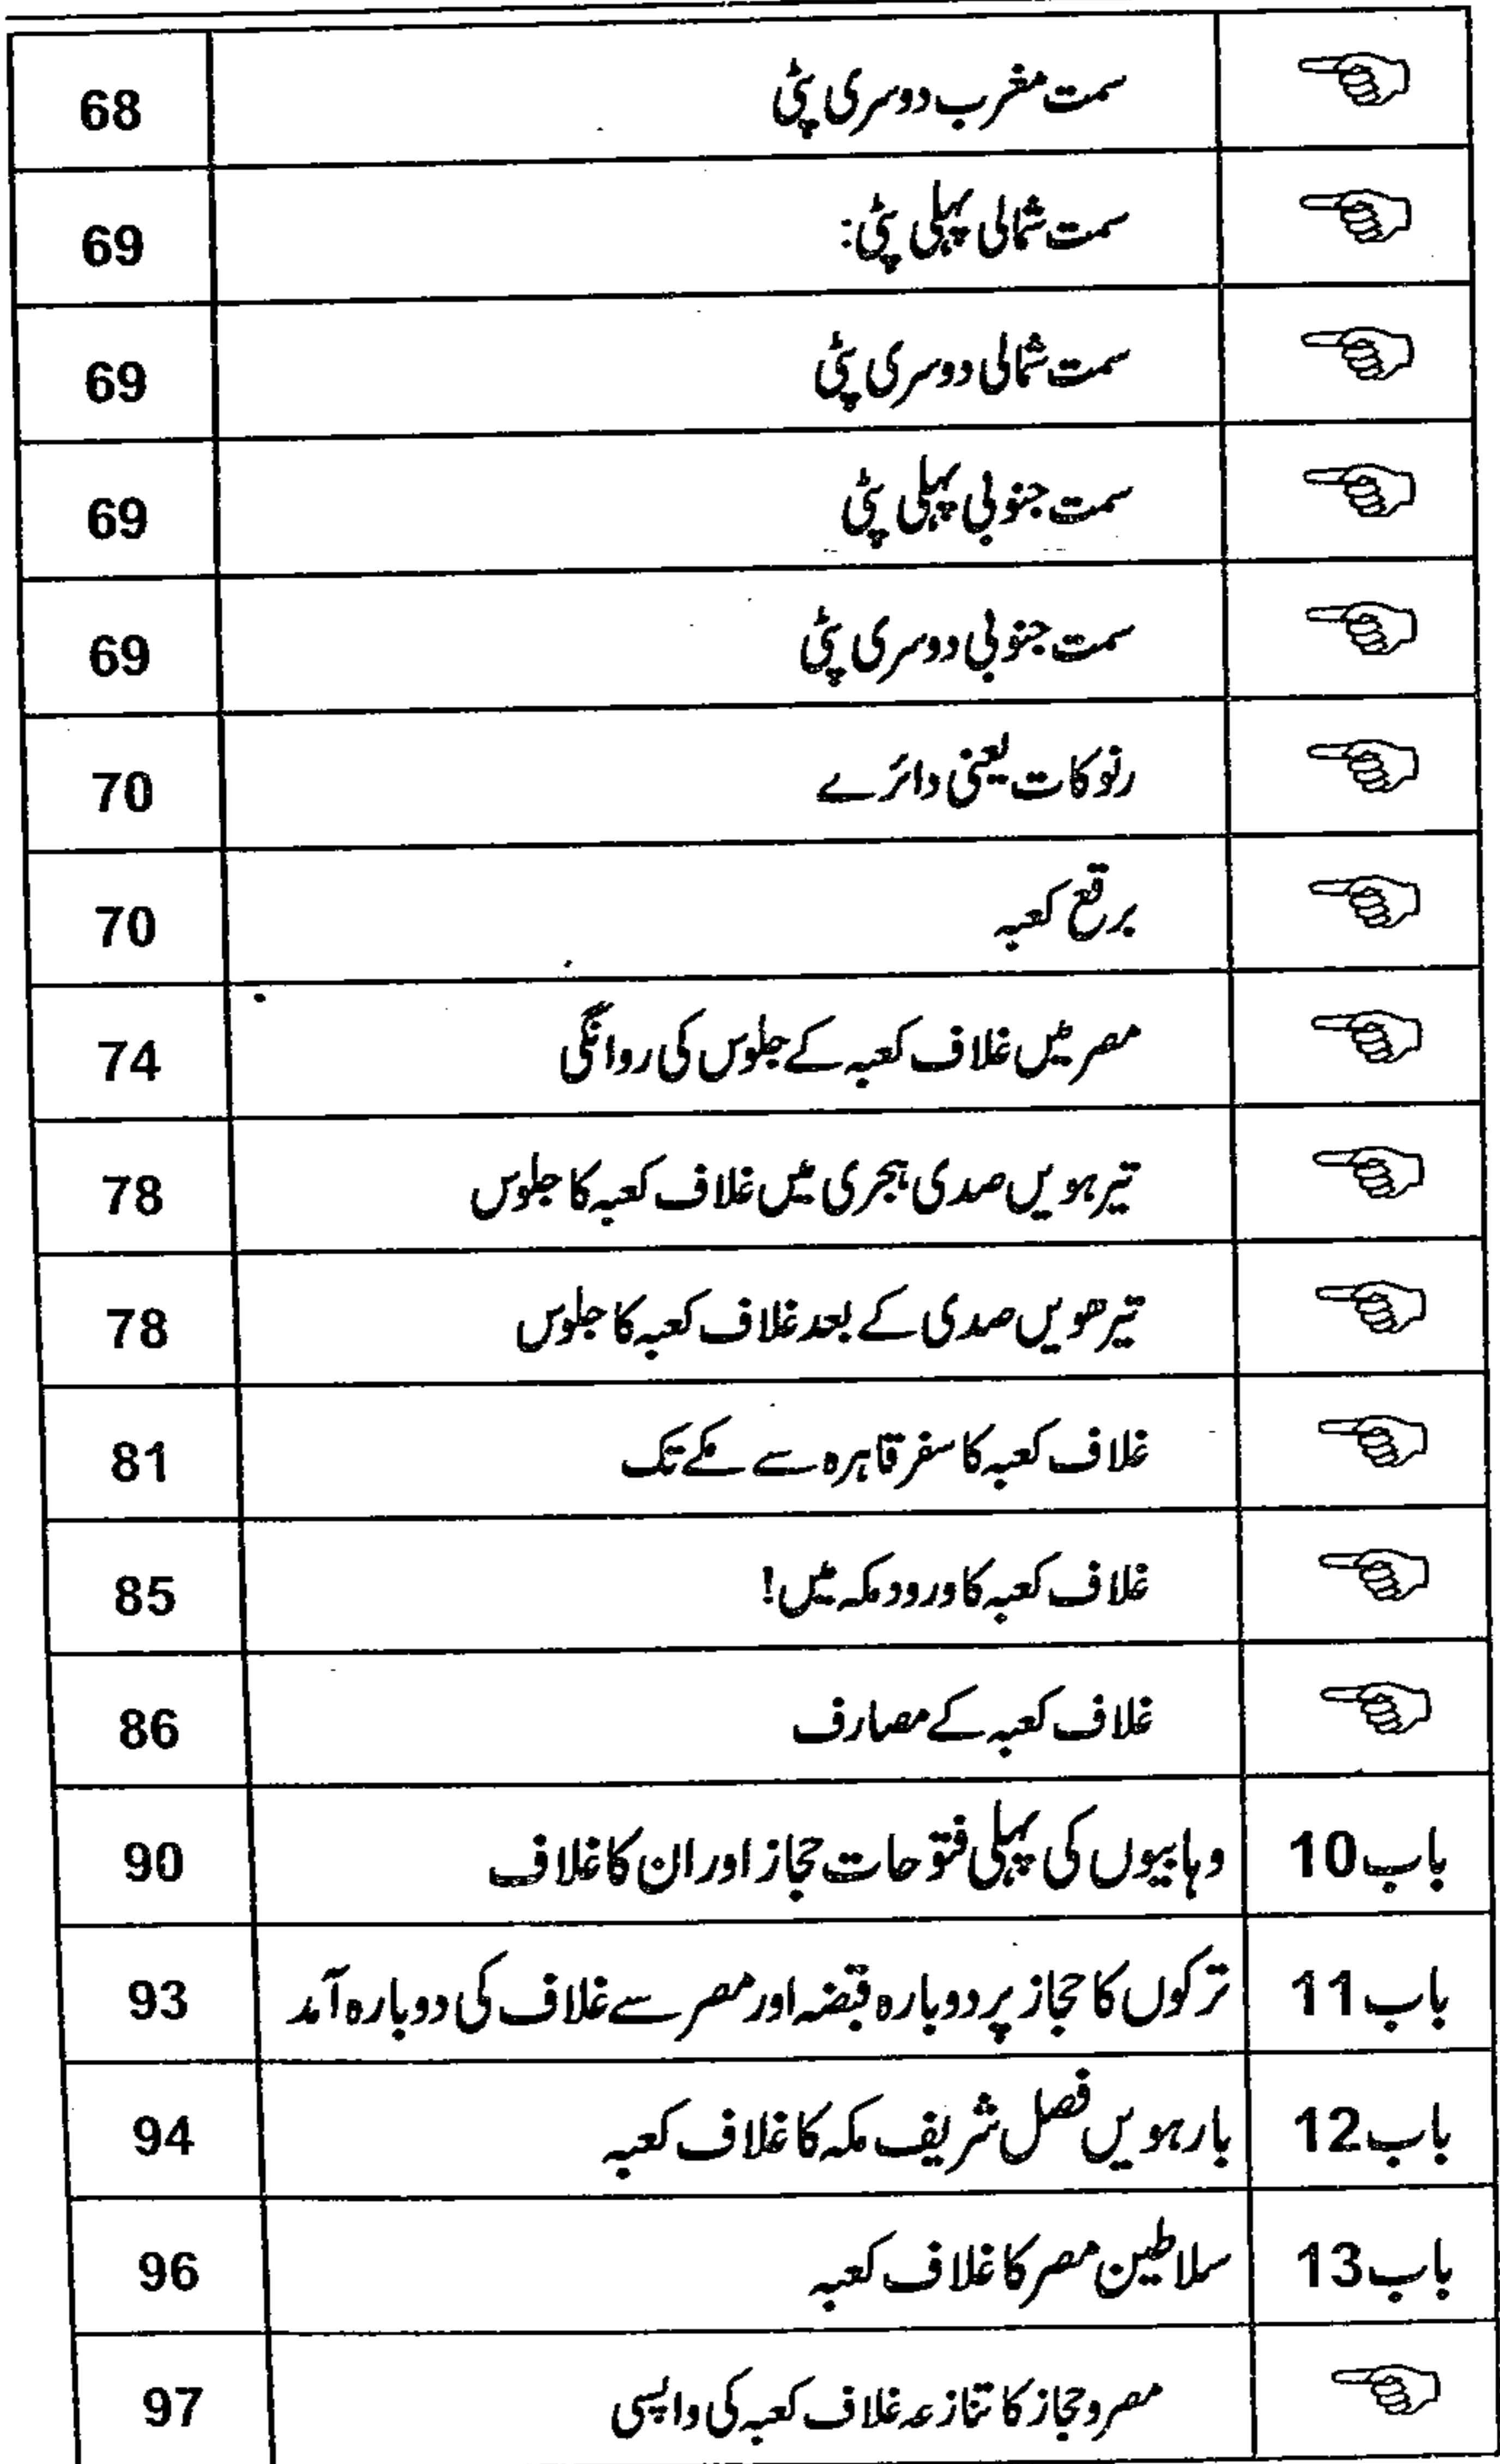 ☜ سمت مغرب دوسری پٹی 68
☜ سمت شمالی پہلی پٹی: 69
☜ سمت شمالی دوسری پٹی 69
☜ سمت جنوبی پہلی پٹی 69
☜ سمت جنوبی دوسری پٹی 69
☜ رنوکات یعنی دائرے 70
☜ برقع کعبہ 70
☜ مصر میں غلاف کعبہ کے جلوس کی روانگی 74
☜ تیرہویں صدی ہجری میں غلاف کعبہ کا جلوس 78
☜ تیرھویں صدی کے بعد غلاف کعبہ کا جلوس 78
☜ غلاف کعبہ کا سفر قاہرہ سے مکے تک 81
☜ غلاف کعبہ کا ورود مکہ میں! 85
☜ غلاف کعبہ کے مصارف 86
باب 10 وہابیوں کی پہلی فتوحات حجاز اور ان کا غلاف 90
باب 11 ترکوں کا حجاز پر دوبارہ قبضہ اور مصر سے غلاف کی دوبارہ آمد 93
باب 12 بارہویں فصل شریف مکہ کا غلاف کعبہ 94
باب 13 سلاطین مصر کا غلاف کعبہ 96
☜ مصر و حجاز کا تنازعہ غلاف کعبہ کی واپسی 97